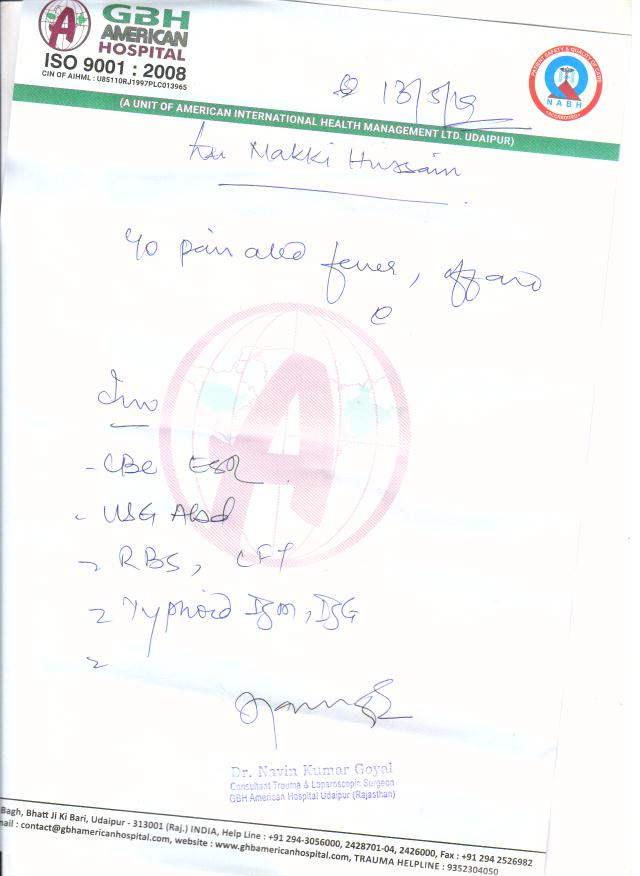 GBH
AMERICAN
HOSPITAL
ISO 9001 : 2008
CIN OF AIHML : U85110RJ1997PLC013965
PATIENT SAFETY & QUALITY OF CARE
NABH
ACCREDITED
(A UNIT OF AMERICAN INTERNATIONAL HEALTH MANAGEMENT LTD. UDAIPUR)
13/5/19
Makki Hussain
pain abd fever,
Inv
- CBC ESR
- USG Abd
RBS,
Typhoid IgM, IgG
Dr. Navin Kumar Goyal
Consultant Trauma & Laparoscopic Surgeon
GBH American Hospital Udaipur (Rajasthan)
Bagh, Bhatt Ji Ki Bari, Udaipur - 313001 (Raj.) INDIA, Help Line : +91 294-3056000, 2428701-04, 2426000, Fax : +91 294 2526982
mail : contact@gbhamericanhospital.com, website : www.gbhamericanhospital.com, TRAUMA HELPLINE : 9352304050